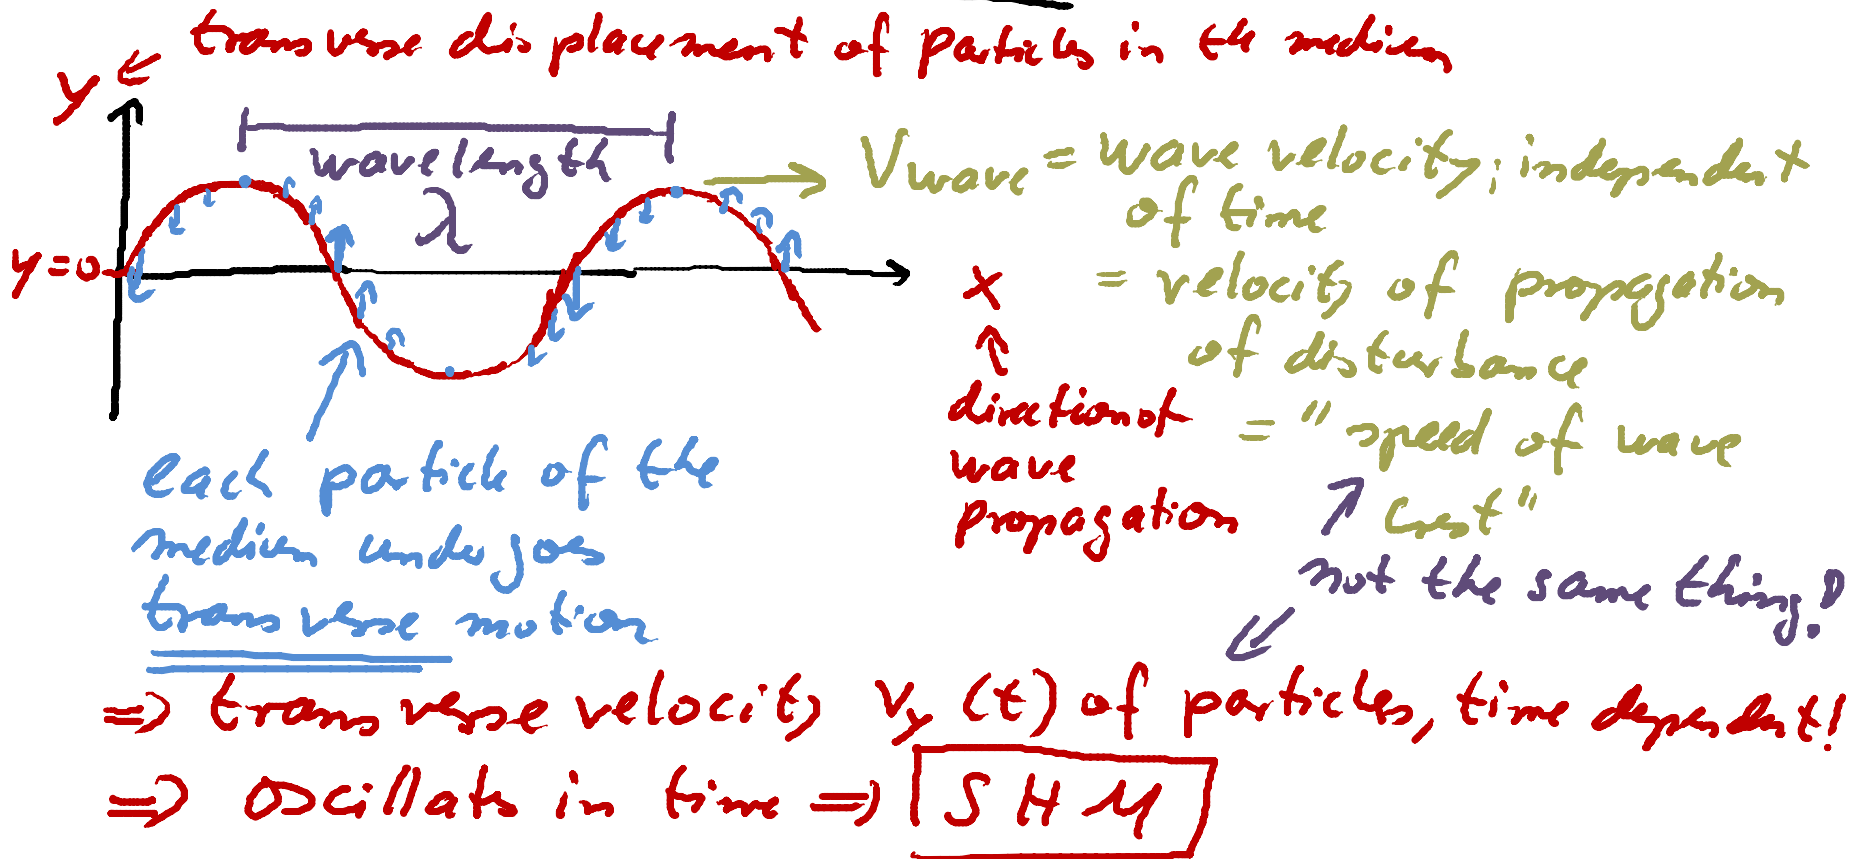 transverse displacement of particles in the medium
y
wavelength
λ
Vwave = wave velocity; independent
of time
y=0
x
= velocity of propagation
of disturbance
direction of
wave
propagation
= "speed of wave
crest"
each particle of the
medium undergoes
transverse motion
not the same thing!
=> transverse velocity vy (t) of particles, time dependent!
=> oscillates in time => SHM